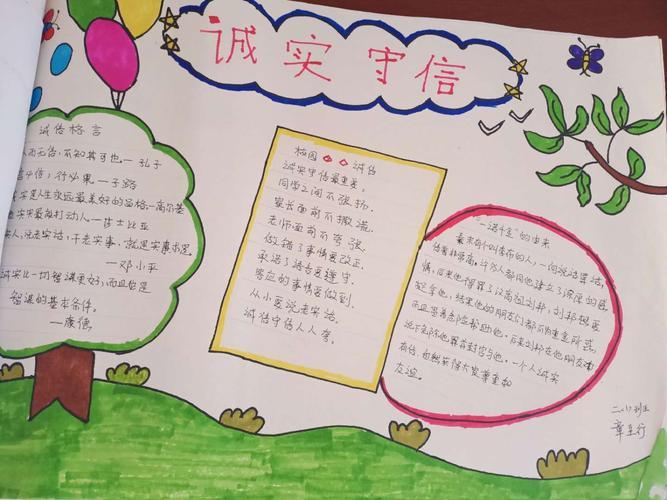 诚实守信
诚信格言
人而无信,不知其可也。—孔子
信;行必果。—子路
实是人生永远最美好的品格。—高尔基
老实最能打动人—莎士比亚
实人,说老实话,干老实事,就是实事求是。
—邓小平
诚实比一切智谋更好,而且它是
智谋的基本条件。
—康德
校园 诚信
诚实守信最重要,
同学之间不张扬.
家长面前不撒谎.
老师面前不夸张.
做错了事情要改正.
承诺了话语要遵守.
答应的事情要做到.
从小要说老实话.
诚信守信人人夸.
"一诺千金"的由来
秦末有个叫季布的人,一向说话算话,
信誉非常高,许多人都同他建立了深厚的感
情,后来他得罪了汉高祖刘邦,刘邦悬赏
捉拿他,结果他的朋友们都不为重金所惑,
而且冒着危险帮助他,后来刘邦在他朋友
说下免除他罪并封官与他,一个人诚实
有信,也能获得大家尊重和
友谊。
二八班
章至行